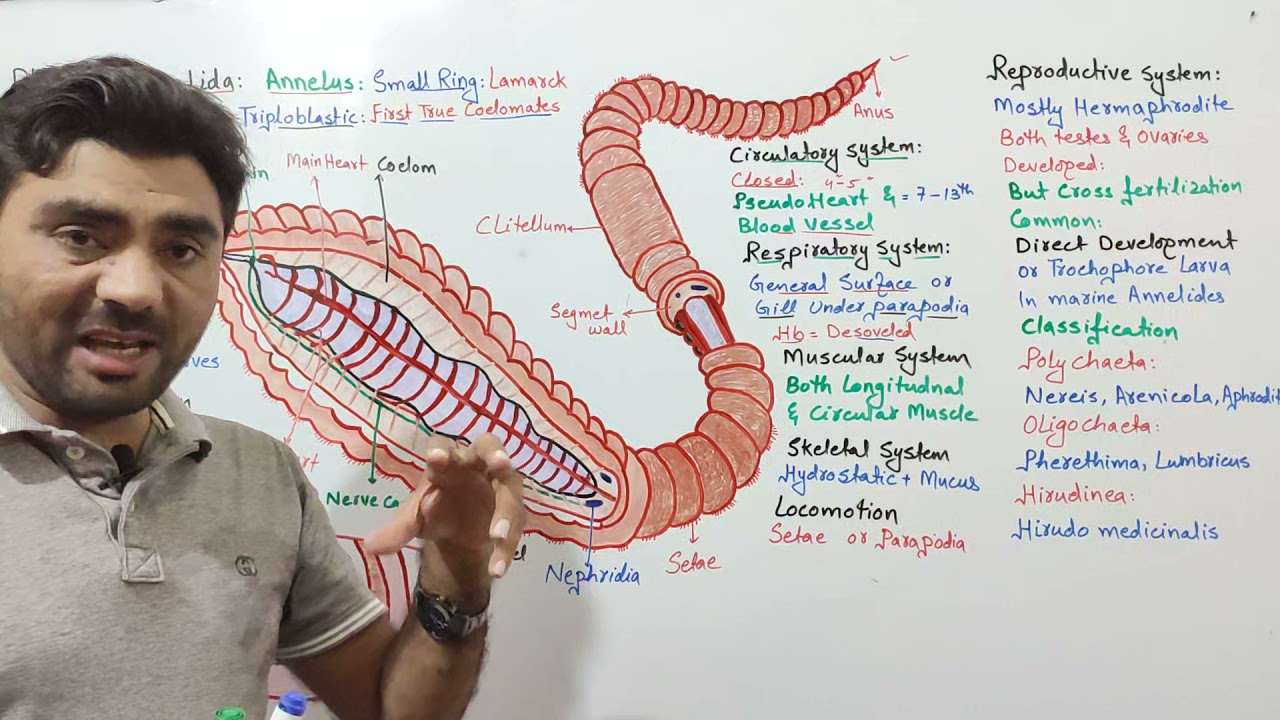 lida: Annelus: Small Ring: Lamarck
Triploblastic: First True Coelomates
Main Heart
Coelom
Anus
Clitellum
Segmet
wall
Nerve
Nephridia
Setae
Circulatory System:
Closed: 4-5
Pseudo Heart & = 7-13th
Blood Vessel
Respiratory System:
General Surface or
Gill Under parapodia
Hb = Desoveled
Muscular System
Both Longitudnal
& Circular Muscle
Skeletal System
Hydrostatic + Mucus
Locomotion
Setae or Parapodia
Reproductive System:
Mostly Hermaphrodite
Both testes & Ovaries
Developed:
But Cross fertilization
Common:
Direct Development
or Trochophore Larva
In marine Annelides
Classification
Polychaeta:
Nereis, Arenicola, Aphrodit
Oligochaeta:
Pherethima, Lumbricus
Hirudinea:
Hirudo medicinalis